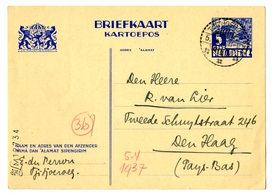 BRIEFKAART
KARTOEPOS
ADRES ALAMAT
5 CENT
NED. INDIE
Den Heere
R. van Lier
Tweede Schuytstraat 246
Den Haag
(Pays-Bas)
36
5-V
1937
NAAM EN ADRES VAN DEN AFZENDER
NAMA DAN ALAMAT SIPENGIRIM
E. du Perron
Tjitjoeroeg